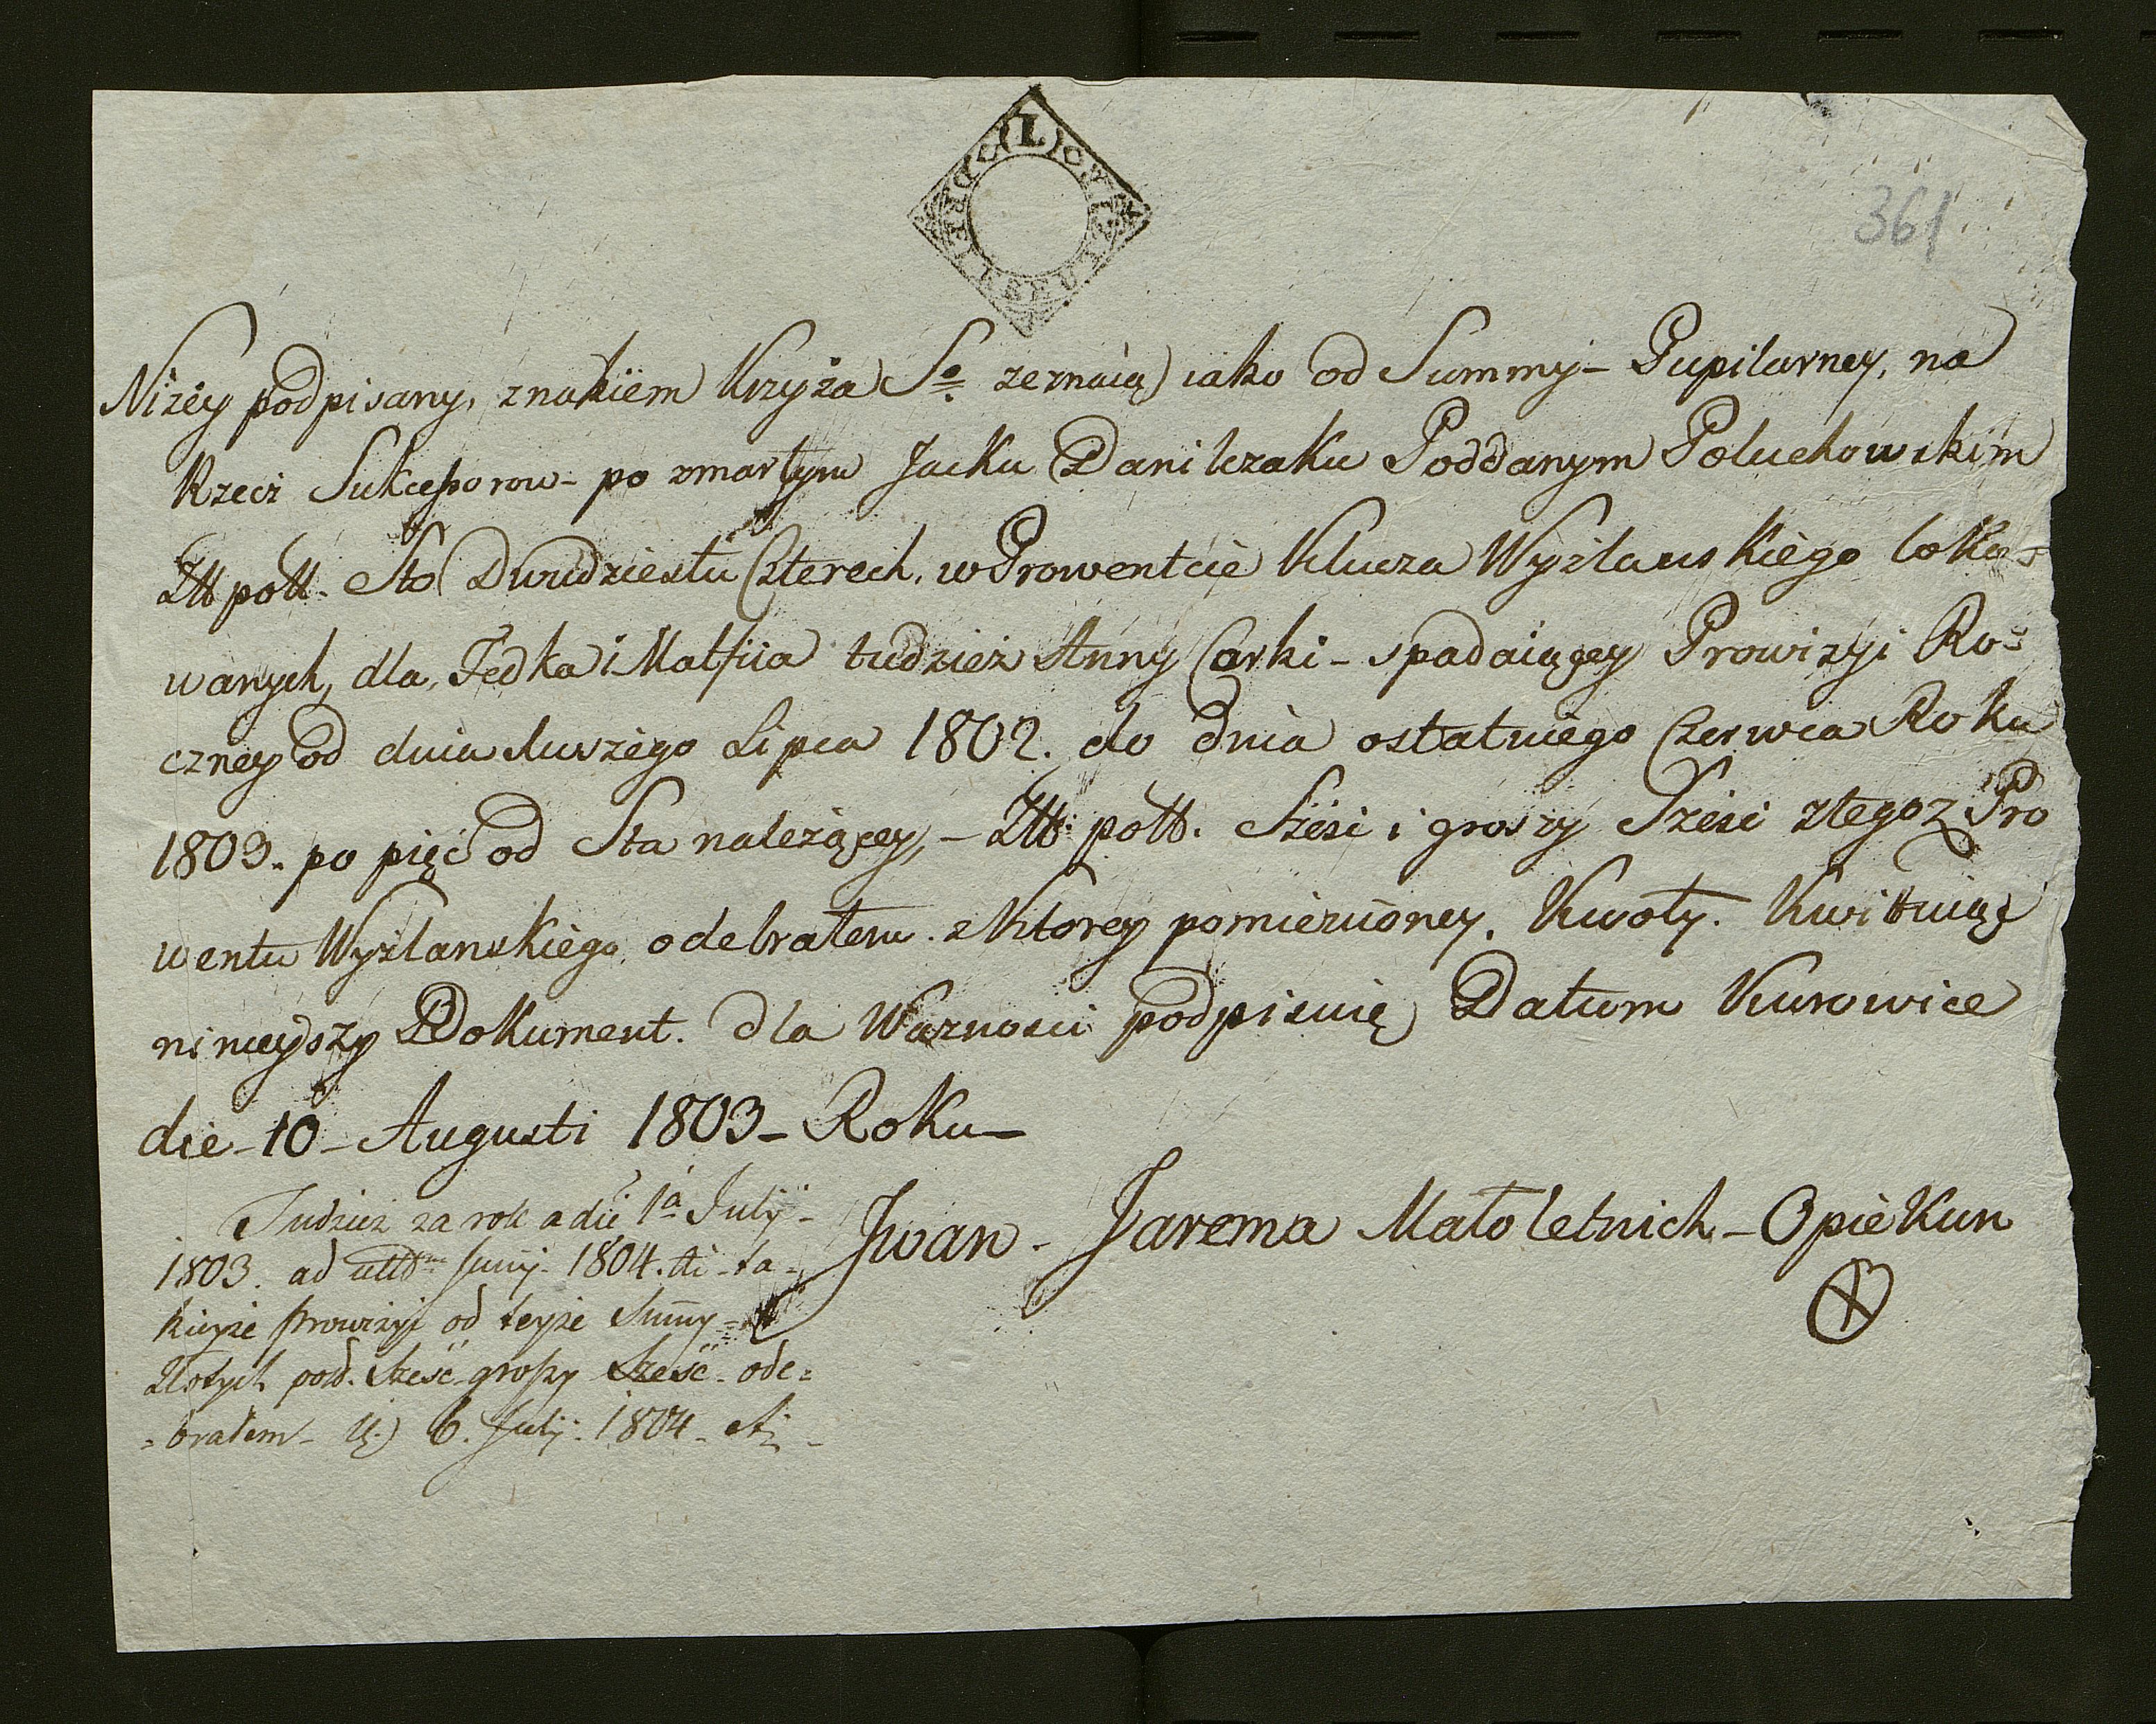 361
Niżey podpisany, znakiem Krzyża So zeznaią iako od Summy - Pupilarney, na
Rzecz Sukcessorow - po zmarłym Jacku Danilczaku Poddanym Poluchowskim
Złł poll. Sto Dwudziestu Czterech. w Prowentcie Klucza Wyżlanskiego loko-
wanych, dla Fedka i Matfiia tudzież Anny Carki - spadaiącey Prowizyi Ro-
czney od dnia 1wszego Lipca 1802. do dnia ostatniego Czerwca Roku
1803. po pięć od Sta należącey, - Złł: poll. Sześć i groszy Sześć ztegoz Pro
wentu Wyżlanskiego odebrałem. z Ktorey pomienioney. Kwoty. Kwittuiąc
ninieyszy Dokument. dla Ważnosci podpisuię Datum Kurowice
die - 10 - Augusti 1803 - Roku -
Iwan - Jarema Małoletnich - Opiekun
Tudzież za rok a die 1a Julij -
1803. ad ult Junij - 1804. ta-
kieyże prowizyi od teyże Sumy =
Złotych pol. sześć groszy sześć - ode=
=brałem - 6. Julij - 1804 -